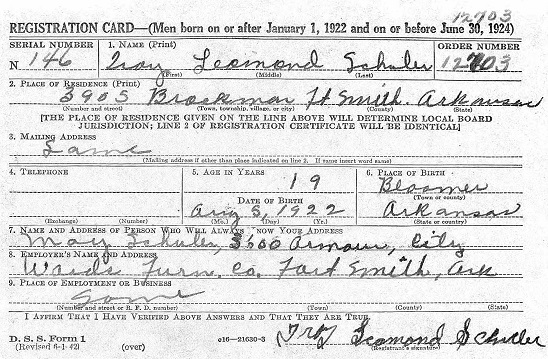 12703
REGISTRATION CARD—(Men born on or after January 1, 1922 and on or before June 30, 1924)
SERIAL NUMBER 1. NAME (Print) ORDER NUMBER
N 146 Troy Lesmond Schuler 12703
(First) (Middle) (Last)
2. PLACE OF RESIDENCE (Print)
3905 Brockman Ft Smith. Arkansas
(Number and street) (Town, township, village, or city) (County) (State)
[THE PLACE OF RESIDENCE GIVEN ON THE LINE ABOVE WILL DETERMINE LOCAL BOARD
JURISDICTION; LINE 2 OF REGISTRATION CERTIFICATE WILL BE IDENTICAL]
3. MAILING ADDRESS
Same
(Mailing address if other than place indicated on line 2. If same insert word same)
4. TELEPHONE 5. AGE IN YEARS 6. PLACE OF BIRTH
19 Bloomer
DATE OF BIRTH (Town or county)
Aug 5, 1922 Arkansas
(Exchange) (Number) (Mo.) (Day) (Yr.) (State or country)
7. NAME AND ADDRESS OF PERSON WHO WILL ALWAYS KNOW YOUR ADDRESS
May Schuler, 3600 Armour, City
8. EMPLOYER'S NAME AND ADDRESS
Wards Furn. Co. Fort Smith, Ark
9. PLACE OF EMPLOYMENT OR BUSINESS
Same
(Number and street or R. F. D. number) (Town) (County) (State)
I AFFIRM THAT I HAVE VERIFIED ABOVE ANSWERS AND THAT THEY ARE TRUE.
Troy Lesmond Schuler
D. S. S. Form 1 (Registrant's signature)
(Revised 6-1-42) (over) c16—21630-3